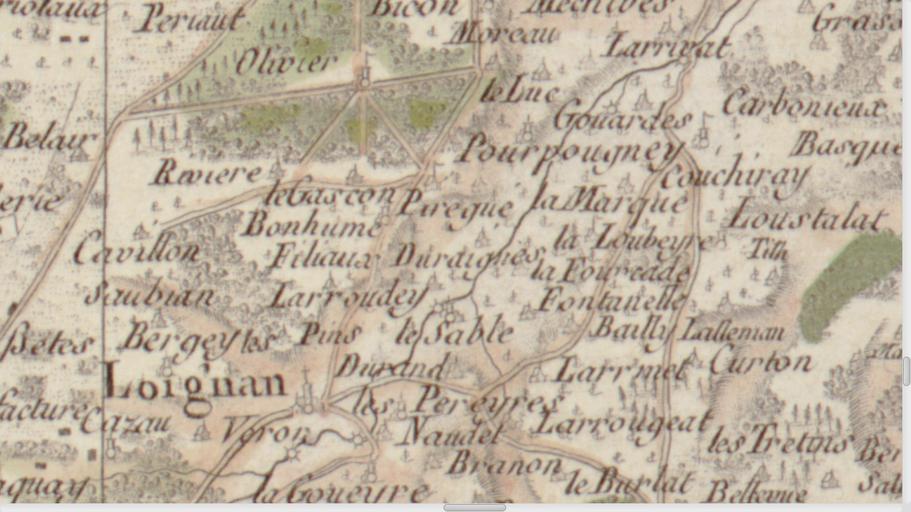 Periaut
Bicon
Moreau
Larrivat
Grass
Olivier
le Luc
Gouardes
Carbonieux
Belair
Pourpougney
Basque
Riviere
Couchiray
erie
le Gascon
Piregue
la Marque
Loustalat
Bonhume
Cavillon
Féliaux
Duraignes
la Loubeyre
Tilh
la Fourcade
Saubian
Larroudey
Fontanelle
Betes
Bergey
les Pins
le Sable
Bailly
Lalleman
Loignan
Durand
Larrmet
Curton
facture
Cazau
les Pereyres
Veron
Naudet
Larrougeat
les Tretins
Ber
Branon
quay
la Goueyre
le Burlat
Bellevue